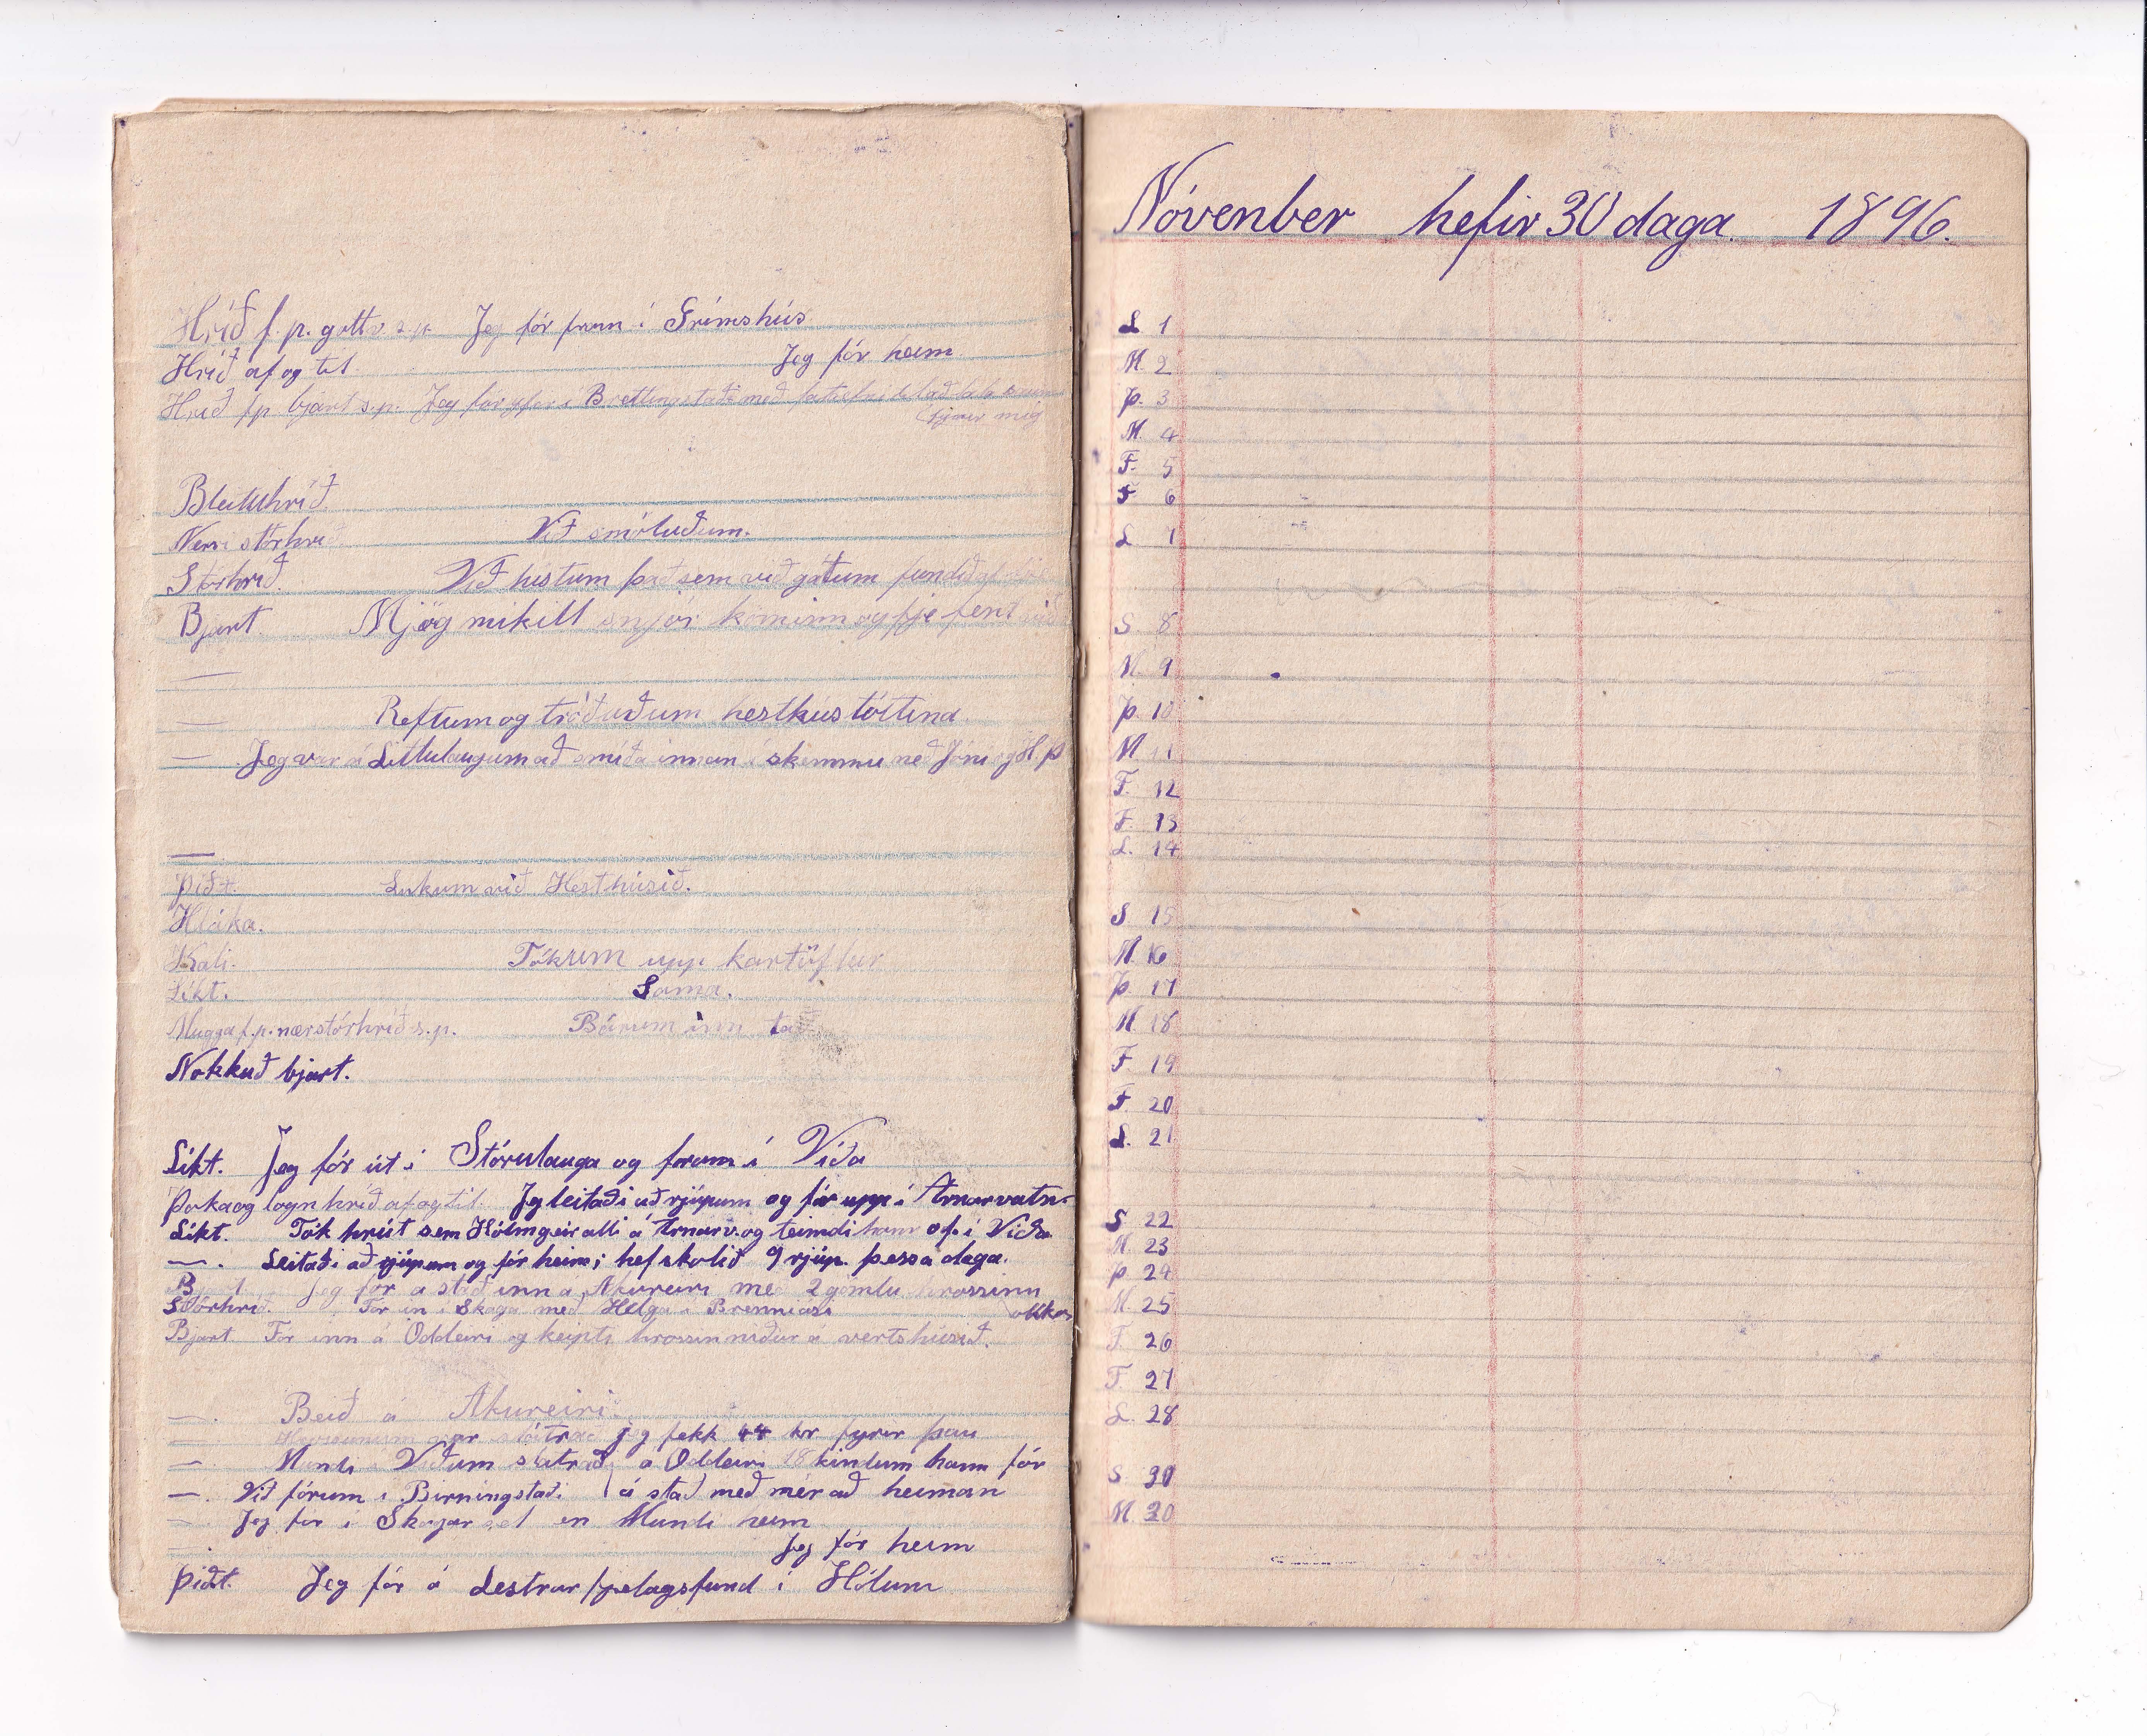 Hríð f.p. gott v s.p. Jeg fór fram í Grímshús
Hríð af og til Jeg fór heim
Hríð fp bjart s.p. Jeg fór yfir í Brettingstaði með
fyrir mig
Bleituhríð
Nerri stórhríð Við smöluðum.
Stórhríð Við hístum það sem við gátum fundið af
Bjart. Mjög mikill snjór kominn og fje fent
—
— Reftum og tróðuðum hesthús tóttina.
— Jeg var á Littulaugum að smíða innan í skemmu með Jóni og H. Þ
—
Þítt. Lukum við Hesthúsið.
Hláka.
Kali. Tókum upp kartöflur
Líkt. Sama.
Mugga f.p. nær stórhríð s.p. Bárum inn ta
Nokkuð bjart.
Líkt. Jeg fór út í Stórulauga og framm í Víða
Þoka og logn hríð af og til. Jeg leitaði að rjúpum og fór upp í Arnarvatn
Líkt. Tók hrút sem Hólmgeir alli á Arnarv. og teimdi hann of. í Víða
—. Leitaði að rjúpum og fór heim; hef skolið 9 rjúp. þessa daga.
B t Jeg fór a stað inn a Akureiri með 2 gömlu hrossinn
Stórhríð. Fór in í Skóga með Helga í Brenniási okkar
Bjart Fór inn á Oddeiri og keipti hrossin niður á vertshúsið.
—. Beið á Akureiri
— var slátrað jeg fekk 44 kr fyrir þau
— Mundi Víðum slátraði á Oddeiri 18 kindum hann fór
—. Við fórum í Birningstaði á stað með mér að heiman
— Jeg fór í Skógarsel en Mundi heim
Jeg fór heim
Þiðt. Jeg fór á Lestrarfjelagsfund í Hólum
Nóvenber hefir 30 daga. 1896.
L 1
M. 2
Þ. 3
M. 4
F. 5
F 6
L 7
S. 8
M. 9
Þ. 10
M 11
F. 12
F. 13
L. 14
S 15
M. 16
Þ. 17
M. 18
F 19
F. 20
L. 21
S 22
M. 23
Þ 24
M. 25
F. 26
F. 27
L. 28
S.
M. 30